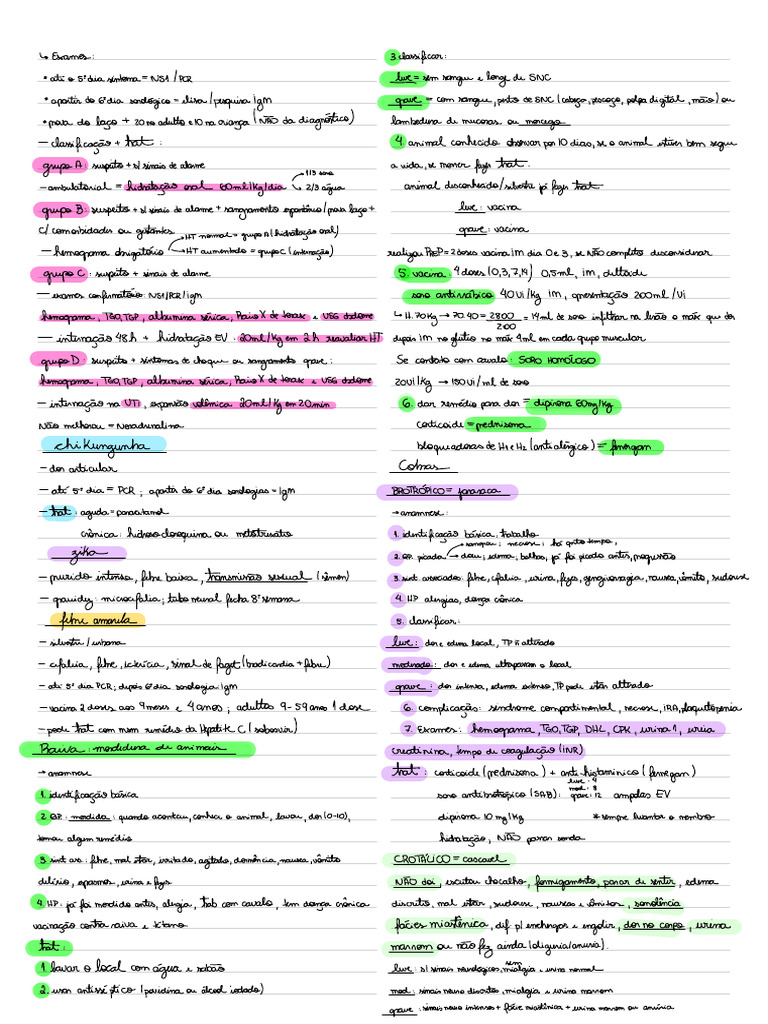 ↳ Exames:
• até o 5º dia sintoma = NS1 / PCR
• apartir do 6º dia sorológico = elisa / pesquisa IgM
• prova do laço + 20 no adulto e 10 na criança (NÃO da diagnóstico)
— classificação + trat :
grupo A: suspeito + s/ sinais de alarme
— ambulatorial = hidratação oral 60ml/kg/dia → 1/3 soro
→ 2/3 água
grupo B: suspeito + s/ sinais de alarme + sangramento espontâneo / prova laço +
c/ comorbidades ou gestantes → HT normal = grupo A (hidratação oral)
— hemograma obrigatório → HT aumentado = grupo C (internação)
grupo C: suspeito + sinais de alarme
— exames confirmatório: NS1/PCR/IgM
hemograma, TGO, TGP, albumina sérica, Raio X de torax e USG abdome
— internação 48h + hidratação EV: 20ml/Kg em 2h reavaliar HT
grupo D suspeito + sintomas de choque ou sangramento grave:
hemograma, TGO, TGP, albumina sérica, Raio X de torax e USG abdome
— internação na UTI, expansão volêmica 20ml/Kg em 20min
Não melhorou = Noradrenalina
chikungunha
— dor articular
— até 5º dia = PCR; apartir do 6º dia sorologias = IgM
— trat: aguda = paracetamol
crônica: hidroxicloroquina ou metotrexato
zika
— prurido intenso, febre baixa, transmissão sexual (sêmen)
— gravidez: microcefalia; tubo neural fecha 8ª semana
febre amarela
— silvestre / urbana
— cefaleia, febre, icterícia, sinal de faget (bradicardia + febre)
— até 5º dia PCR; depois 6º dia sorologia IgM
— vacina 2 doses aos 9 meses e 4 anos; adultos 9-59 anos 1 dose
— pode trat com msm remédio da Hepatite C (sofosbuvir)
Raiva: mordedura de animais
→ anamnese
1. identificação básica
2. QP: mordida: quando aconteceu, conhece o animal, lavou, dor (0-10),
tomou algum remédio
3. sint ass: febre, mal estar, irritado, agitado, dormência, nausea, vômito
delírio, espasmos, urina e fezes
4. HP: já foi mordido antes, alergia, trab com cavalo, tem doença crônica
vacinação contra raiva e tétano
trat:
1. lavar o local com água e sabão
2. usar antisséptico (povidine ou álcool iodado)
3 classificar:
leve = sem sangue e longe de SNC
grave = com sangue, perto de SNC (cabeça, pescoço, polpa digital, mão) ou
lambedura de mucosas ou morcego
4. animal conhecido observar por 10 dias, se o animal estiver bem segue
a vida, se morrer fazer trat:
animal desconhecido/silvestre já fazer trat:
leve: vacina
grave: vacina
realizou PREP = 2 doses vacina IM dia 0 e 3, se não completo desconsiderar
5. vacina: 4 doses (0, 3, 7, 14) 0,5ml, IM, deltoide
soro antirrábico 40UI/Kg IM, apresentação 200ml / UI
↳ H. 70Kg → 70.40 = 2800/200 = 14ml de soro infiltrar na lesão o máx que der
depois IM no glúteo no máx 4ml em cada grupo muscular
Se contato com cavalo: SORO HOMÓLOGO
20UI/Kg → 150UI/ml de soro
6. dar remédio para dor = dipirona 60mg/Kg
corticoide = prednisona
bloqueadores de H1 e H2 (antialérgico) = fenergan
Cobras
BROTRÓPICO = jararaca
→ anamnese:
1. identificação básica trabalho
2. QP. picada → sangrou; necrose; há qnto tempo,
→ doeu; edema; bolhas, já foi picado antes, progressão
3. sint. associado: febre, cefaleia, urina, fezes, gengivorragia, nausea, vômito, sudorese
4. HP alergias, doença crônica
5. classificar:
leve: dor e edema local, TP ñ alterado
moderado: dor e edema ultrapassam o local
grave: dor intensa, edema extenso, TP pode estar alterado
6. complicação: síndrome compartimental, necrose, IRA, plaquetopenia
7. Exames: hemograma, TGO, TGP, DHL, CPK, urina 1, ureia
creatinina, tempo de coagulação (INR)
trat: corticoide (prednisona) + anti-histaminico (fenergan)
soro antibotrópico (SAB): leve: 4 mod: 8 grave: 12 ampolas EV
dipirona 10mg/Kg * sempre levantar o membro
hidratação, NÃO passar sonda
CROTÁLICO = cascavel
NÃO doi, escutou chocalho, formigamento, parar de sentir, edema
discreto, mal estar, sudorese, nauseas e vômitos, sonolência
fácies miastênica, dif. p/ enchergar e engolir, dor no corpo, urina
marrom ou não fez ainda (oliguria/anuria).
leve: s/ sinais neurológicos, sem mialgia e urina normal
mod: sinais neuro discreto, mialgia e urina marrom
grave: sinais neuro intensos + fácie miastênica + urina marrom ou anúria